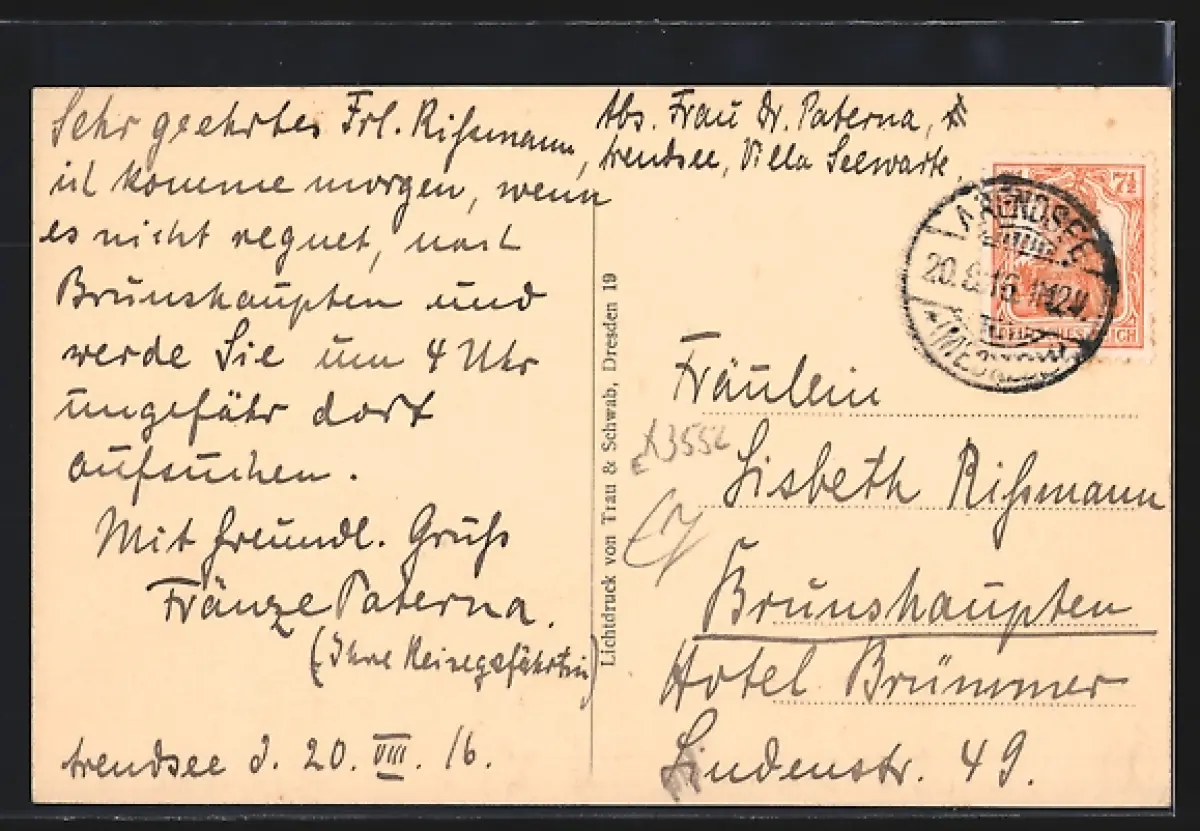 Sehr geehrtes Frl. Rißmann,
ich komme morgen, wenn
es nicht regnet, nach
Brunshaupten und
werde Sie um 4 Uhr
ungefähr dort
aufsuchen.
Mit freundl. Gruß
Fränze Paterna.
(Ihre Reisegefährtin)
Arendsee d. 20. VIII. 16.
Lichtdruck von Trau & Schwab, Dresden 19
Abs. Frau Dr. Paterna, A
rendsee, Villa Seewarte.
7½
ARENDSEE
20.8.16.
Fräulein
Lisbeth Rißmann
Brunshaupten
Hotel Brümmer
Lindenstr. 49.